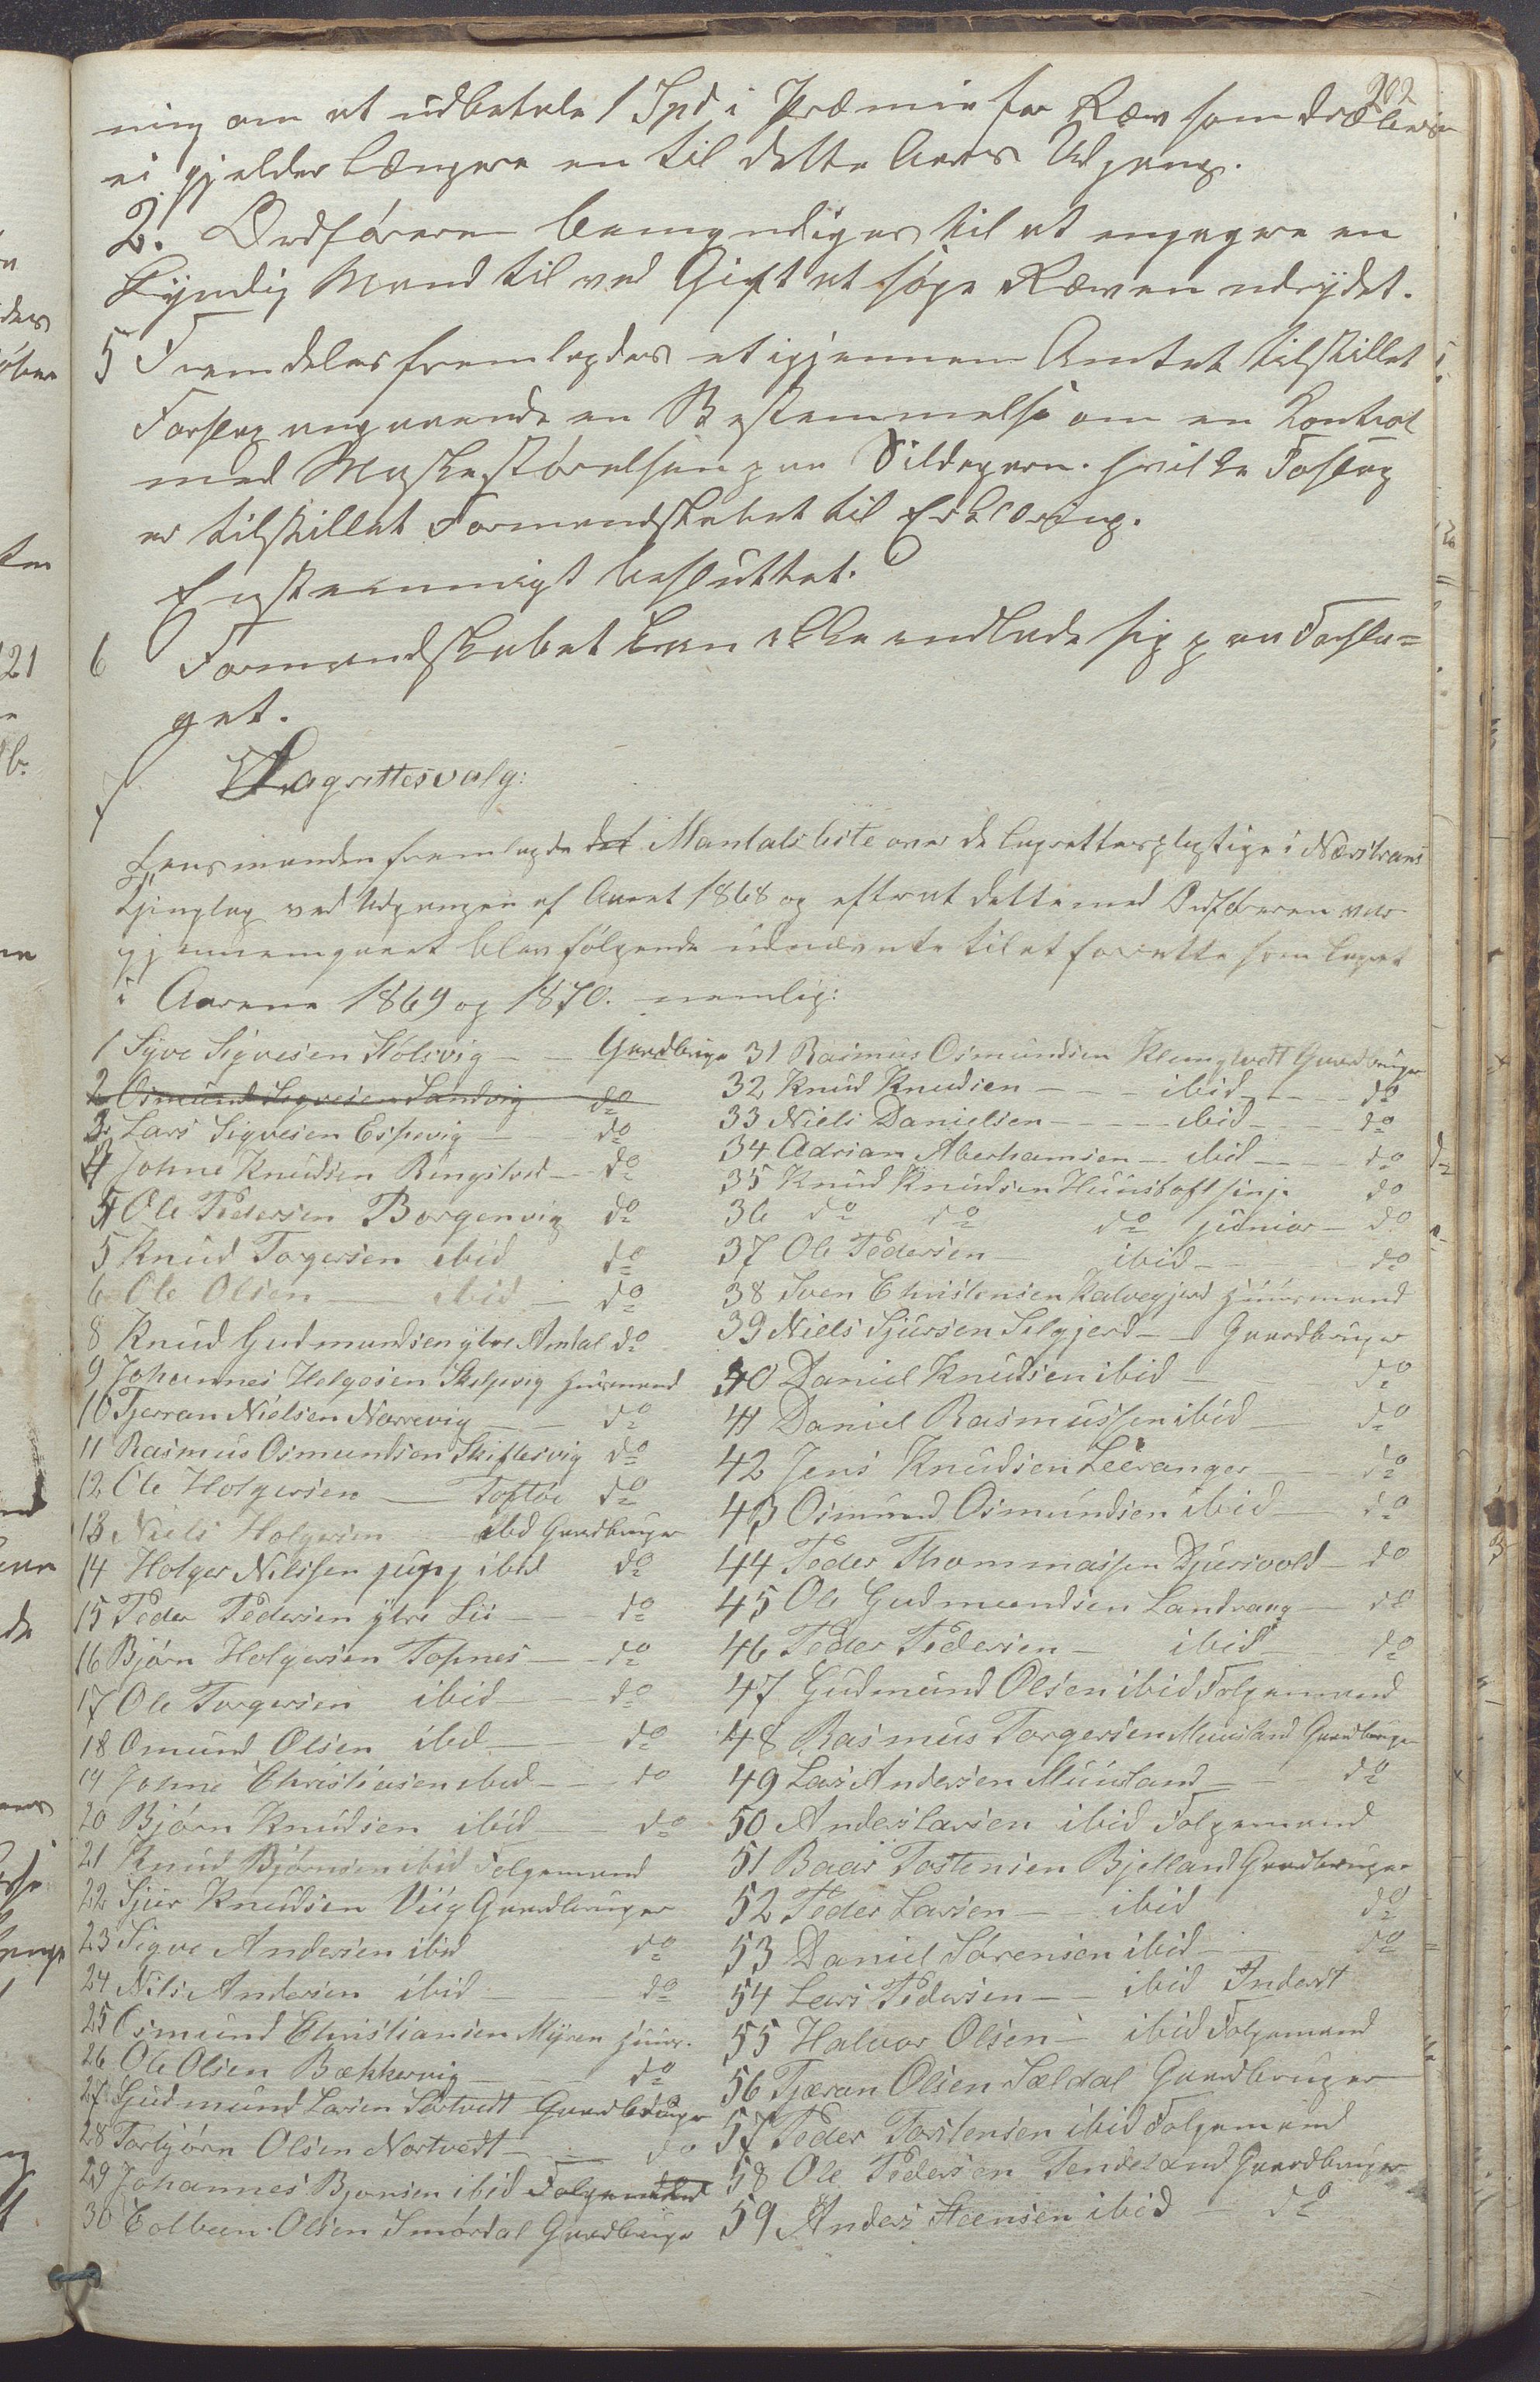 202
ning om at udbetale 1 Spd i Præmie for Ræv som dræbes
ei gjelder længere en til dette Aars Udgang.
2. Ordføreren bemyndiges til at engagere en
kyndig Mand til ved Gift at søge Ræven udrydet.
5 Fremdeles fremlagdes et igjennem Amtet tilstillet
Forslag angaaende en Bestemmelse om en Kontrol
med Maskestørelsen paa Sildegarn. hvilke Foslag
er tilstillet Formandskabet til Erklæring.
Enstemmigt besluttet.
6 Formandskabet kan ikke indlade sig paa Forsla=
get.
7 Lagrettesvalg:
Lensmanden fremlagde det Mantalsliste over de lagrettespligtige i Nærstrans
Thinglag ved Udgangen af Aaret 1868 og efterat dette med Ordføreren var
gjennemgaaet blev følgende udnævnte til at forrette som Lagret
i Aarene 1869 og 1870. nemlig:
1 Syve Sigvesen Stølsvig - - Gaardbruge
2 Osmund Sigvesen Sandvig do
3 Lars Sigvesen Espevig - do
4 Johne Knudsen Ringstved - do
5 Ole Pedersen Borgenvig do
5 Knud Torgersen ibid do
6 Ole Olsen - ibid - do
8 Knud Gudmundsen ytre Amdal do
9 Johannes Helgesen Skeljevig Huusmand
10 Tjerran Nielsen Narrevig - - do
11 Rasmus Osmundsen Skiftesvig do
12 Ole Holgersen - Toftøe do
13 Niels Holgersen ibid Gaardbruger
14 Holger Nilssen ibid do
15 Peder Pedersen ytre Lie - - do
16 Bjørn Holgersen Topnes - - do
17 Ole Torgersen ibid - - do
18 Omund Olsen ibid - - do
19 Johne Christiansen ibid - - do
20 Bjørn Knudsen ibid - - do
21 Knud Bjørnsen ibid Folgemand
22 Sjur Knudsen Viig Gaardbruger
23 Sigve Andersen ibid do
24 Nils Andersen ibid - do
25 Osmund Christiansen Myren Huus.
26 Ole Olsen Bækkervig - - do
27 Gudmund Larsen Sørtvedt Gaardbruger
28 Torbjørn Olsen Nortvedt - - do
29 Johannes Bjønsen ibid Folgemand
30 Colbeen Olsen Smørdal Gaardbruge
31 Rasmus Osmundsen Klungtvedt Gaardbruger
32 Knud Knudsen - - - ibid - - - do
33 Niels Danielsen - - - - ibid - - - do
34 Adrian Aberhamsen - - ibid - - - do
35 Knud Knudsen Huustoft sinj. do
36 do do do junior - do
37 Ole Pedersen - ibid - - - do
38 Sven Christensen Kalvegjerd Huusmand
39 Niels Sjursen Selgjerd - - Gaardbruger
40 Daniel Knudsen ibid - - do
41 Daniel Rasmussen ibid - do
42 Jens Knudsen Leeranger - - do
43 Osmund Osmundsen ibid - - do
44 Peder Thommassen Djursvold - do
45 Ole Gudmundsen Landvang - do
46 Peder Pedersen - ibid - - do
47 Gudmund Olsen ibid Folgemand
48 Rasmus Torgersen Muusland Gaardbruge
49 Lars Andersen Muusland - - do
50 Anders Larsen ibid Folgemand
51 Baar Tostensen Bjelland Gaardbruger
52 Peder Larsen - - ibid do
53 Daniel Sørensen ibid - - do
54 Lars Pedersen - - ibid Inderst
55 Halvor Olsen - ibid Folgemand
56 Tjæran Olsen Sældal Gaardbruger
57 Peder Torstensen ibid Folgemand
58 Ole Pedersen Tendeland Gaardbruger
59 Anders Steensen ibid - do